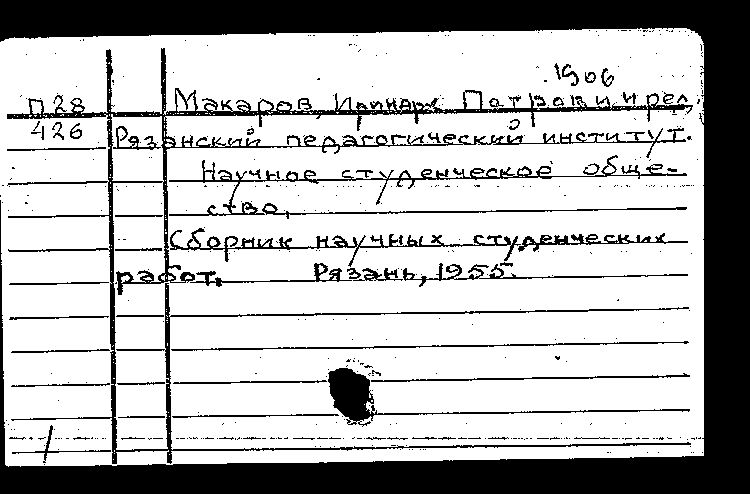 1906
П28 Макаров, Иринарх ред.
426 Рязанский педагогический институт.
Научное студенческое обще-
ство.
Сборник научных студенческих
работ. Рязань, 1955.